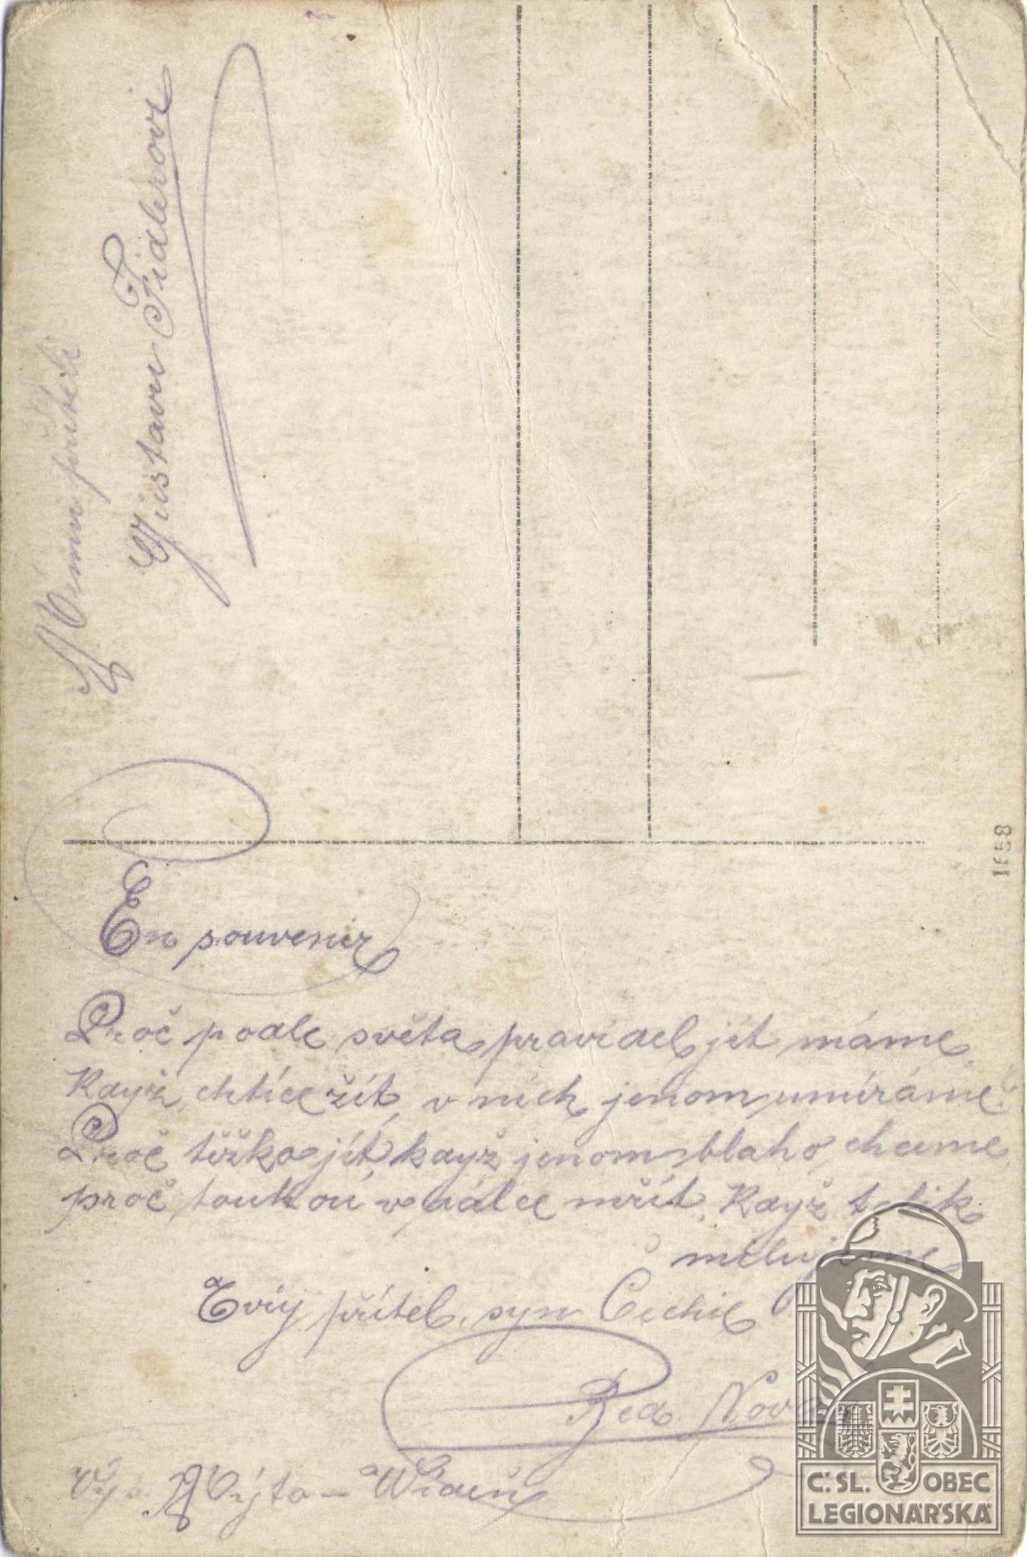 Mému příteli
Gustavu Fidlerovi
En souvenir
Proč podle světa pravidel jít máme
Když chtíce žít, v nich jenom umíráme?
Proč těžko jít, když jenom blaho chceme
proč touhou v dálce mřít, když tolik
milujeme
Tvůj přítel, syn Čechie
Nov
1658
Č:SL. OBEC
LEGIONÁŘSKÁ